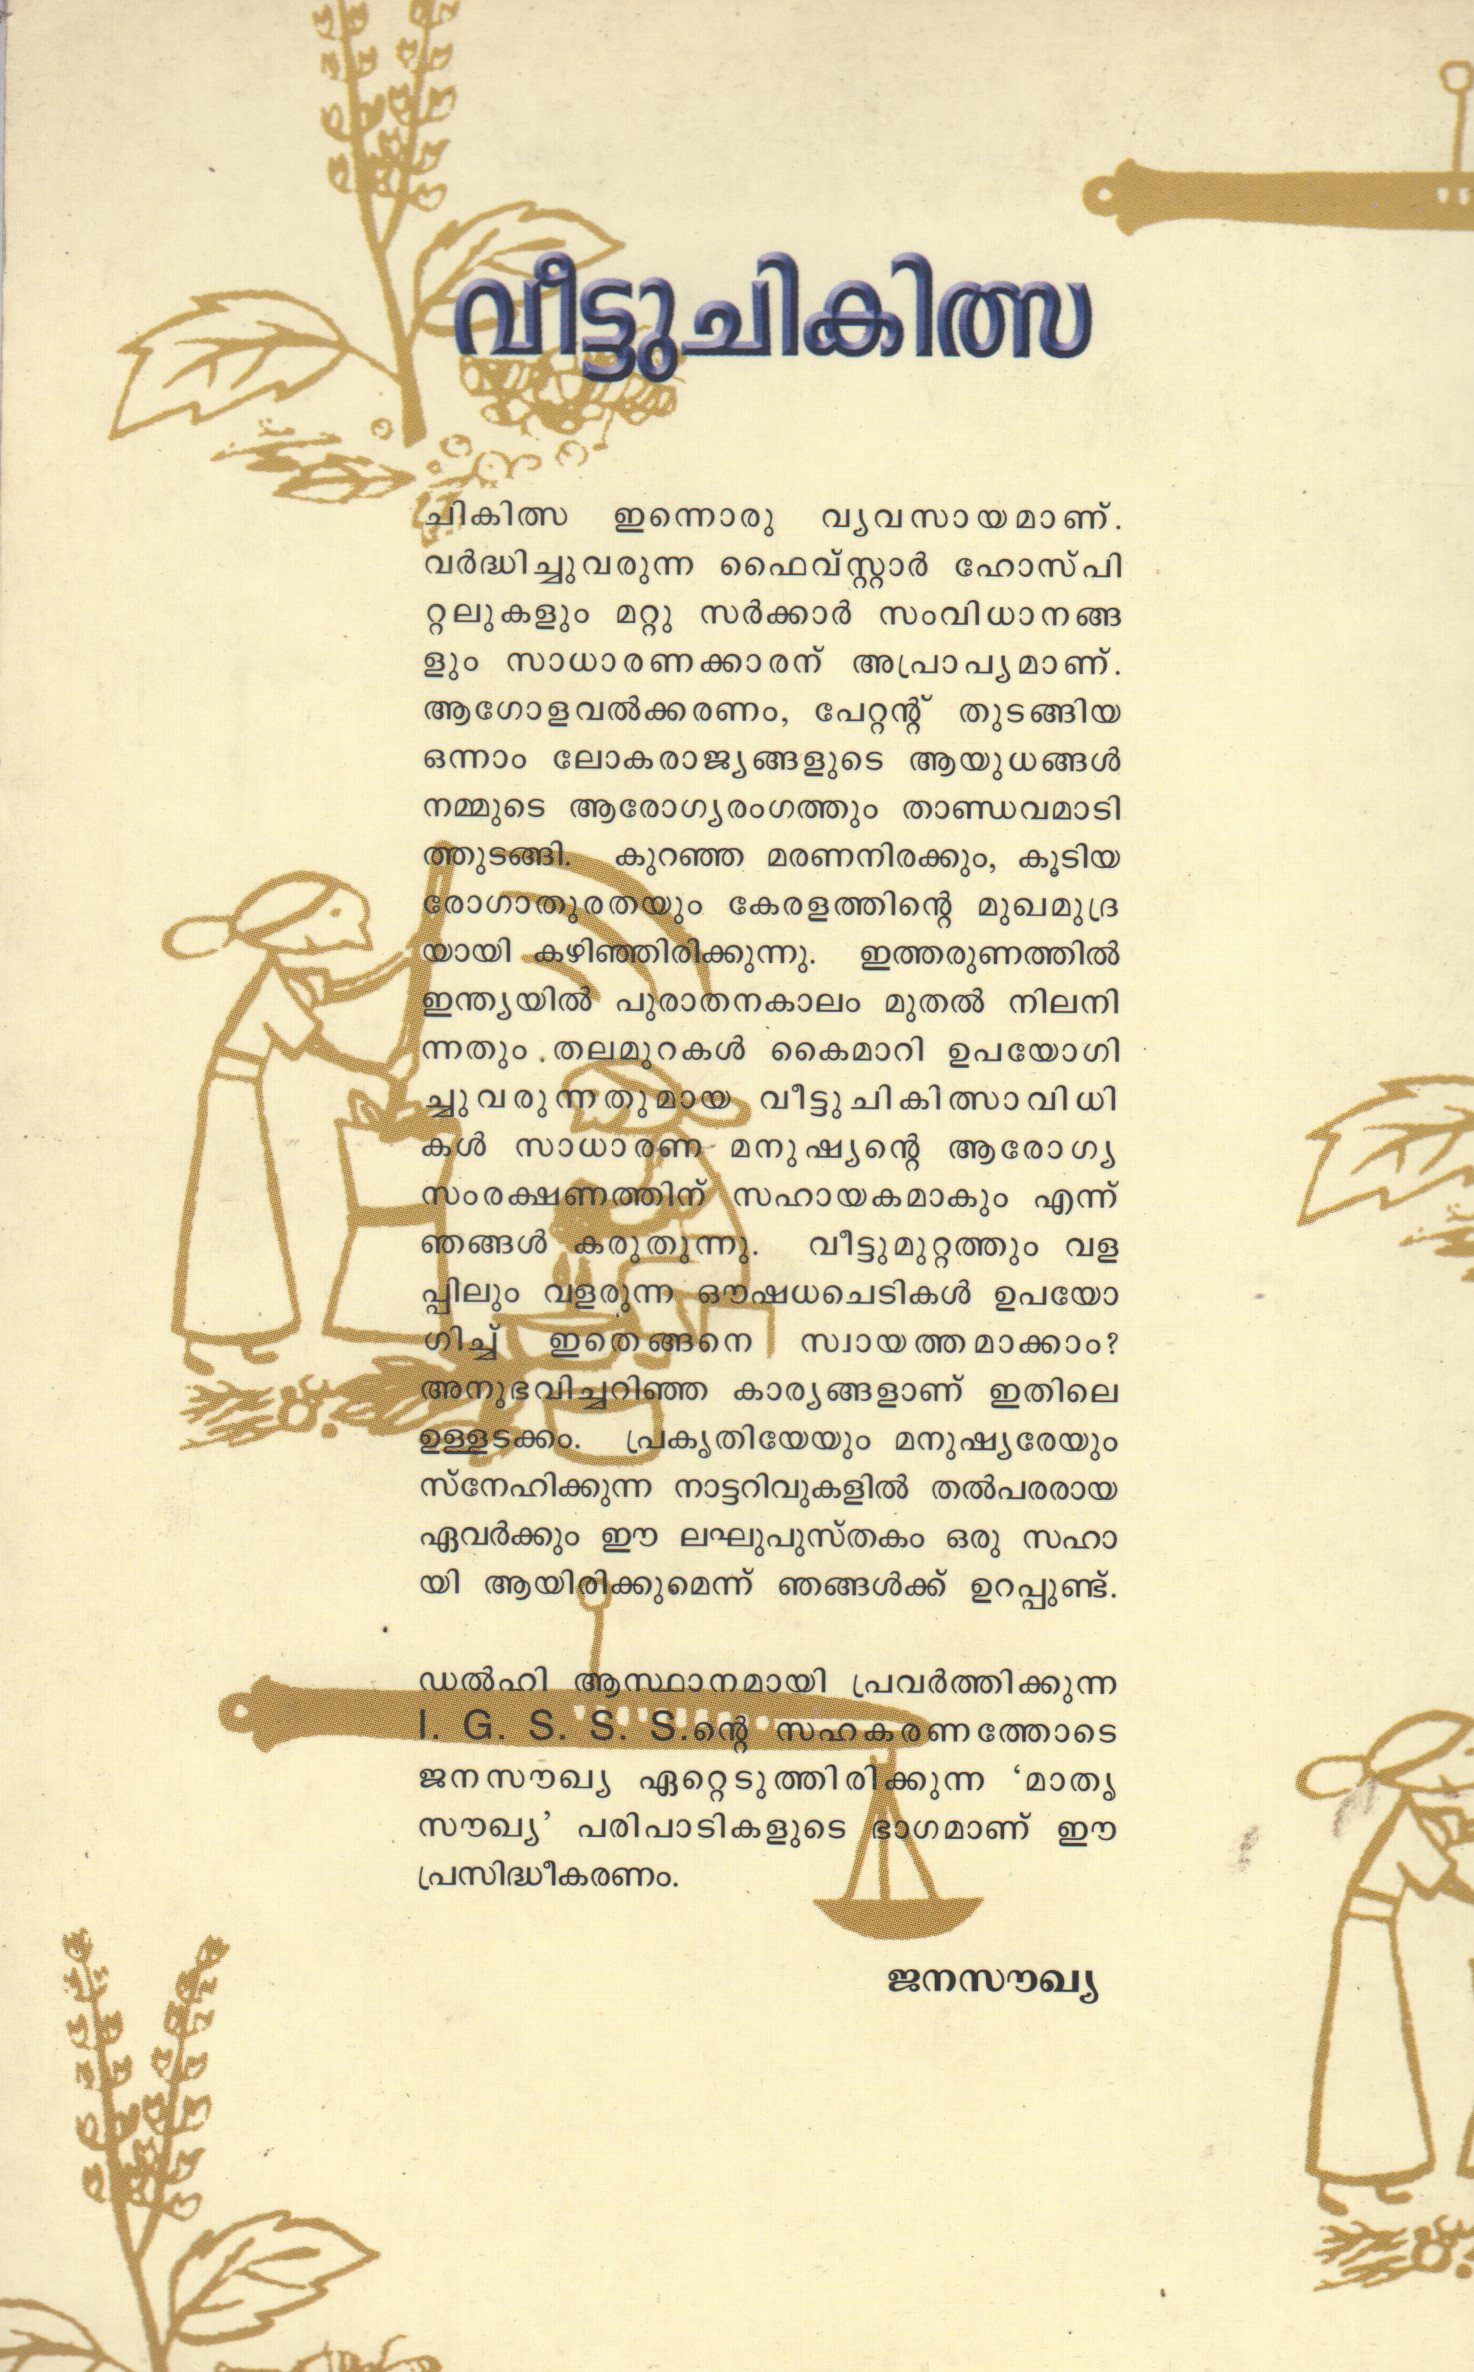 വീട്ടുചികിത്സ
ചികിത്സ ഇന്നൊരു വ്യവസായമാണ്.
വർദ്ധിച്ചുവരുന്ന ഫൈവ്സ്റ്റാർ ഹോസ്പി
റ്റലുകളും മറ്റു സർക്കാർ സംവിധാനങ്ങ
ളും സാധാരണക്കാരന് അപ്രാപ്യമാണ്.
ആഗോളവൽക്കരണം, പേറ്റന്റ് തുടങ്ങിയ
ഒന്നാം ലോകരാജ്യങ്ങളുടെ ആയുധങ്ങൾ
നമ്മുടെ ആരോഗ്യരംഗത്തും താണ്ഡവമാടി
ത്തുടങ്ങി. കുറഞ്ഞ മരണനിരക്കും, കൂടിയ
രോഗാതുരതയും കേരളത്തിന്റെ മുഖമുദ്ര
യായി കഴിഞ്ഞിരിക്കുന്നു. ഇത്തരുണത്തിൽ
ഇന്ത്യയിൽ പുരാതനകാലം മുതൽ നിലനി
ന്നതും തലമുറകൾ കൈമാറി ഉപയോഗി
ച്ചുവരുന്നതുമായ വീട്ടുചികിത്സാവിധി
കൾ സാധാരണ മനുഷ്യന്റെ ആരോഗ്യ
സംരക്ഷണത്തിന് സഹായകമാകും എന്ന്
ഞങ്ങൾ കരുതുന്നു. വീട്ടുമുറ്റത്തും വള
പ്പിലും വളരുന്ന ഔഷധചെടികൾ ഉപയോ
ഗിച്ച് ഇതെങ്ങനെ സ്വായത്തമാക്കാം?
അനുഭവിച്ചറിഞ്ഞ കാര്യങ്ങളാണ് ഇതിലെ
ഉള്ളടക്കം. പ്രകൃതിയേയും മനുഷ്യരേയും
സ്നേഹിക്കുന്ന നാട്ടറിവുകളിൽ തൽപരരായ
ഏവർക്കും ഈ ലഘുപുസ്തകം ഒരു സഹാ
യി ആയിരിക്കുമെന്ന് ഞങ്ങൾക്ക് ഉറപ്പുണ്ട്.
ഡൽഹി ആസ്ഥാനമായി പ്രവർത്തിക്കുന്ന
I. G. S. S. S.ന്റെ സഹകരണത്തോടെ
ജനസൗഖ്യ ഏറ്റെടുത്തിരിക്കുന്ന ‘മാതൃ
സൗഖ്യ’ പരിപാടികളുടെ ഭാഗമാണ് ഈ
പ്രസിദ്ധീകരണം.
ജനസൗഖ്യ